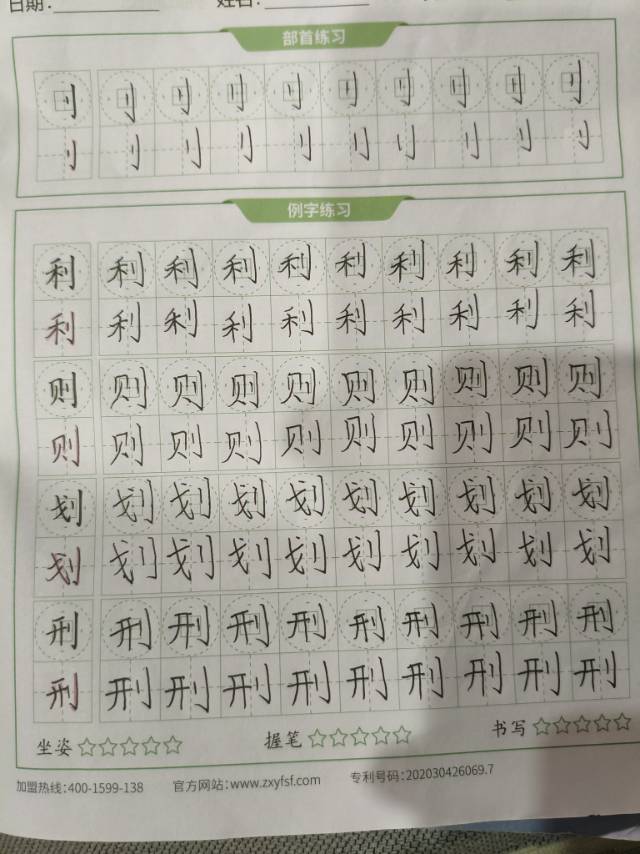 日期: 姓名:
部首练习
刂 刂 刂 刂 刂 刂 刂 刂 刂 刂
刂 刂 刂 刂 刂 刂 刂 刂 刂 刂
例字练习
利 利 利 利 利 利 利 利 利 利
利 利 利 利 利 利 利 利 利 利
则 则 则 则 则 则 则 则 则 则
则 则 则 则 则 则 则 则 则 则
划 划 划 划 划 划 划 划 划 划
划 划 划 划 划 划 划 划 划 划
刑 刑 刑 刑 刑 刑 刑 刑 刑 刑
刑 刑 刑 刑 刑 刑 刑 刑 刑 刑
坐姿☆☆☆☆☆ 握笔☆☆☆☆☆ 书写☆☆☆☆☆
加盟热线:400-1599-138 官方网站:www.zxyfsf.com 专利号码:202030426069.7